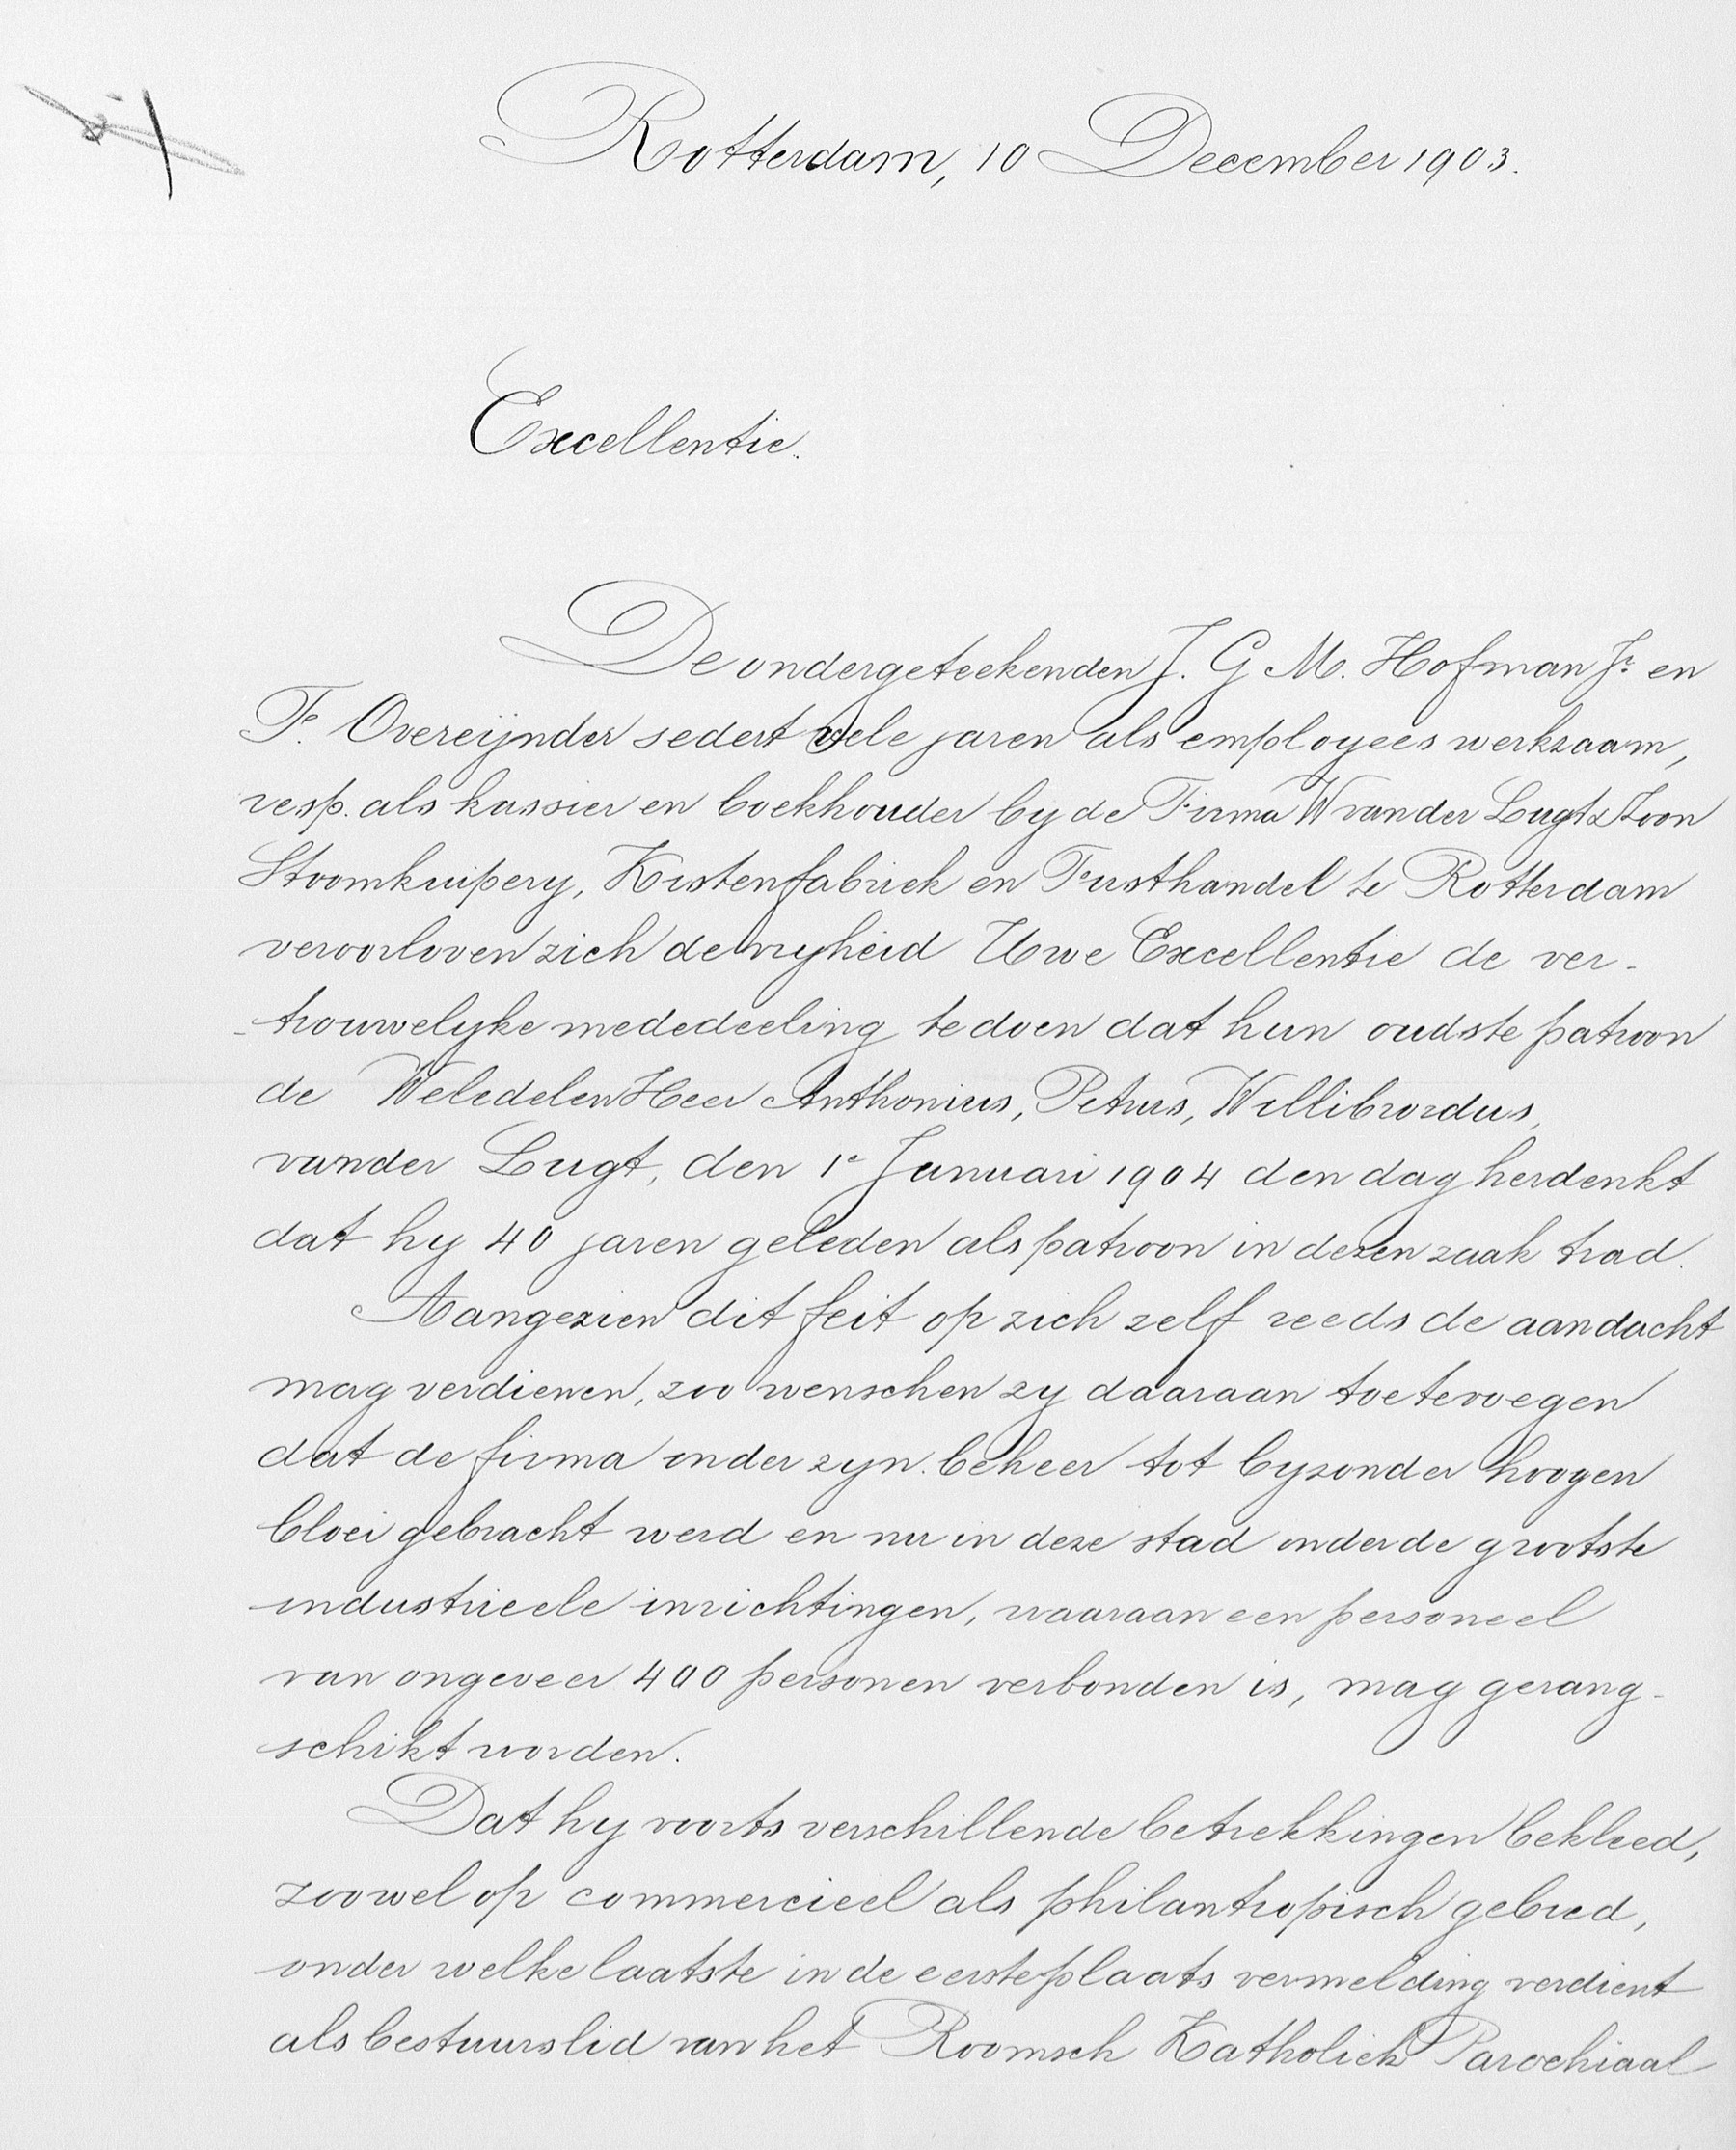 Rotterdam, 10 December 1903.
Excellentie.
De ondergeteekenden J. G. M. Hofman Jr. en
F. Overeijnder sedert vele jaren als employees werkzaam,
resp. als kassier en boekhouder by de Firma W van der Lugt & Zoon
Stoomkuipery, Kistenfabriek en Fusthandel te Rotterdam
veroorloven zich de vryheid Uwe Excellentie de ver-
-trouwelyke mededeeling te doen dat hun oudste patroon
de Weledelen Heer Anthonius, Petrus, Willibrordus,
van der Lugt, den 1e Januari 1904 den dag herdenkt
dat hy 40 jaren geleden als patroon in dezen zaak trad.
Aangezien dit feit op zich zelf reeds de aandacht
mag verdienen, zoo wenschen zy daaraan toetevoegen
dat de firma onder zyn beheer tot byzonder hoogen
bloei gebracht werd en nu in deze stad onder de grootste
industrieele inrichtingen, waaraan een personeel
van ongeveer 400 personen verbonden is, mag gerang-
schikt worden.
Dat hy voorts verschillende betrekkingen bekleed,
zoowel op commercieel als philantropisch gebied,
onder welke laatste in de eerste plaats vermelding verdient
als bestuurslid van het Roomsch Katholiek Parochiaal